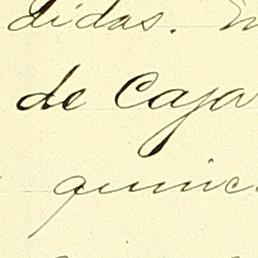 didas.
de Caja
quinc